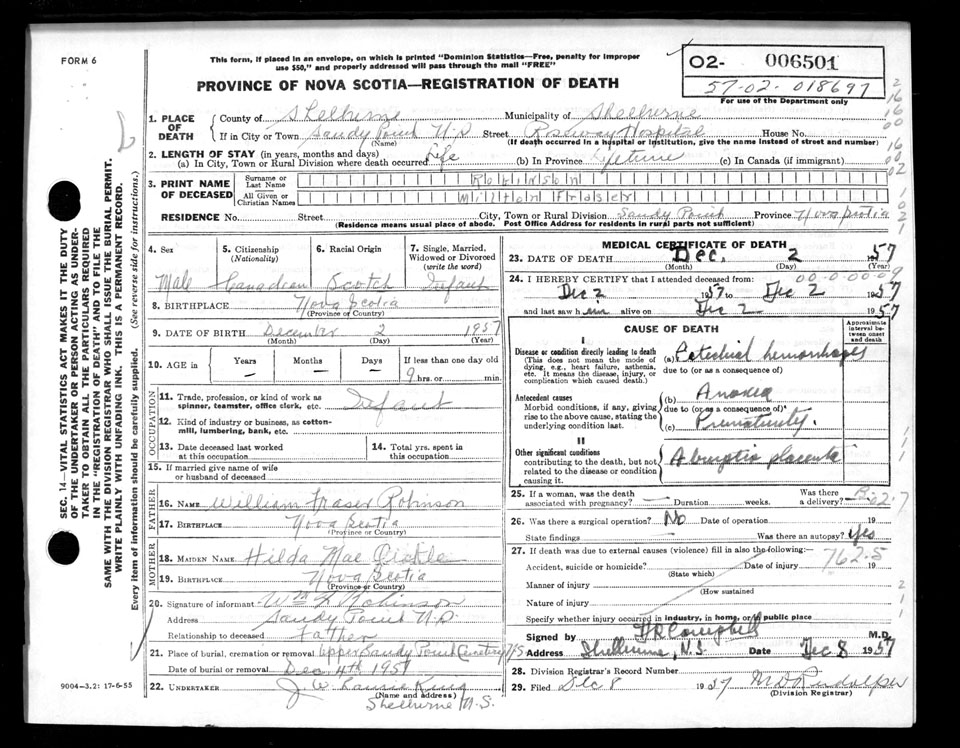 FORM 6
This form, if placed in an envelope, on which is printed "Dominion Statistics—Free, penalty for improper
use $50," and properly addressed will pass through the mail "FREE"
PROVINCE OF NOVA SCOTIA—REGISTRATION OF DEATH
O2- 006501
57-02-018697
For use of the Department only
1. PLACE OF DEATH
County of Shelburne Municipality of Shelburne
If in City or Town Sandy Point N.S. Street Roseway Hospital House No.
(Name) (If death occurred in a hospital or institution, give the name instead of street and number)
2. LENGTH OF STAY (in years, months and days)
(a) In City, Town or Rural Division where death occurred Life (b) In Province Lifetime (c) In Canada (if immigrant)
3. PRINT NAME OF DECEASED
Surname or Last Name Robinson
All Given or Christian Names Milton Fraser
RESIDENCE No. Street City, Town or Rural Division Sandy Point Province Nova Scotia
(Residence means usual place of abode. Post Office Address for residents in rural parts not sufficient)
4. Sex 5. Citizenship (Nationality) 6. Racial Origin 7. Single, Married, Widowed or Divorced (write the word)
Male Canadian Scotch Infant
8. BIRTHPLACE Nova Scotia
(Province or Country)
9. DATE OF BIRTH December 2 1957
(Month) (Day) (Year)
10. AGE in Years Months Days If less than one day old
9 hrs. or min.
OCCUPATION
11. Trade, profession, or kind of work as spinner, teamster, office clerk, etc. Infant
12. Kind of industry or business, as cotton-mill, lumbering, bank, etc.
13. Date deceased last worked at this occupation 14. Total yrs. spent in this occupation
15. If married give name of wife or husband of deceased
FATHER
16. NAME William Fraser Robinson
17. BIRTHPLACE Nova Scotia
(Province or Country)
MOTHER
18. MAIDEN NAME Hilda Mae
19. BIRTHPLACE Nova Scotia
(Province or Country)
20. Signature of informant Wm F Robinson
Address Sandy Point N.S.
Relationship to deceased Father
21. Place of burial, cremation or removal Upper Sandy Point Cemetery N/S
Date of burial or removal Dec 4th 1957
22. UNDERTAKER J. W. Laurie King
(Name and address)
Shelburne N.S.
MEDICAL CERTIFICATE OF DEATH
23. DATE OF DEATH Dec. 2 1957
(Month) (Day) (Year)
24. I HEREBY CERTIFY that I attended deceased from:
00-0-00-09
Dec 2 1957 to Dec 2 1957
and last saw him alive on Dec 2 1957
CAUSE OF DEATH
Approximate interval between onset and death
I
Disease or condition directly leading to death
(This does not mean the mode of dying, e.g., heart failure, asthenia, etc. It means the disease, injury, or complication which caused death.)
(a) Petechial hemorrhages
due to (or as a consequence of)
Antecedent causes
Morbid conditions, if any, giving rise to the above cause, stating the underlying condition last.
(b) Anoxia
due to (or as a consequence of)
(c) Prematurity.
II
Other significant conditions
contributing to the death, but not related to the disease or condition causing it.
Abruptio placenta
25. If a woman, was the death associated with pregnancy? Duration weeks. Was there a delivery?
26. Was there a surgical operation? No Date of operation 19
State findings Was there an autopsy? Yes
27. If death was due to external causes (violence) fill in also the following:—
762.5
Accident, suicide or homicide? Date of injury 19
(State which)
Manner of injury
(How sustained
Nature of injury
Specify whether injury occurred in industry, in home, or in public place
Signed by HR Campbell M.D.
Address Shelburne, N.S. Date Dec 8 1957
28. Division Registrar's Record Number
29. Filed Dec 8 1957
(Division Registrar)
9004-3.2: 17-6-55
SEC. 14—VITAL STATISTICS ACT MAKES IT THE DUTY
OF THE UNDERTAKER OR PERSON ACTING AS UNDER-
TAKER TO OBTAIN ALL THE PARTICULARS REQUIRED
IN THE "REGISTRATION OF DEATH" AND TO FILE THE
SAME WITH THE DIVISION REGISTRAR WHO SHALL ISSUE THE BURIAL PERMIT.
WRITE PLAINLY WITH UNFADING INK. THIS IS A PERMANENT RECORD.
Every item of information should be carefully supplied. (See reverse side for instructions.)